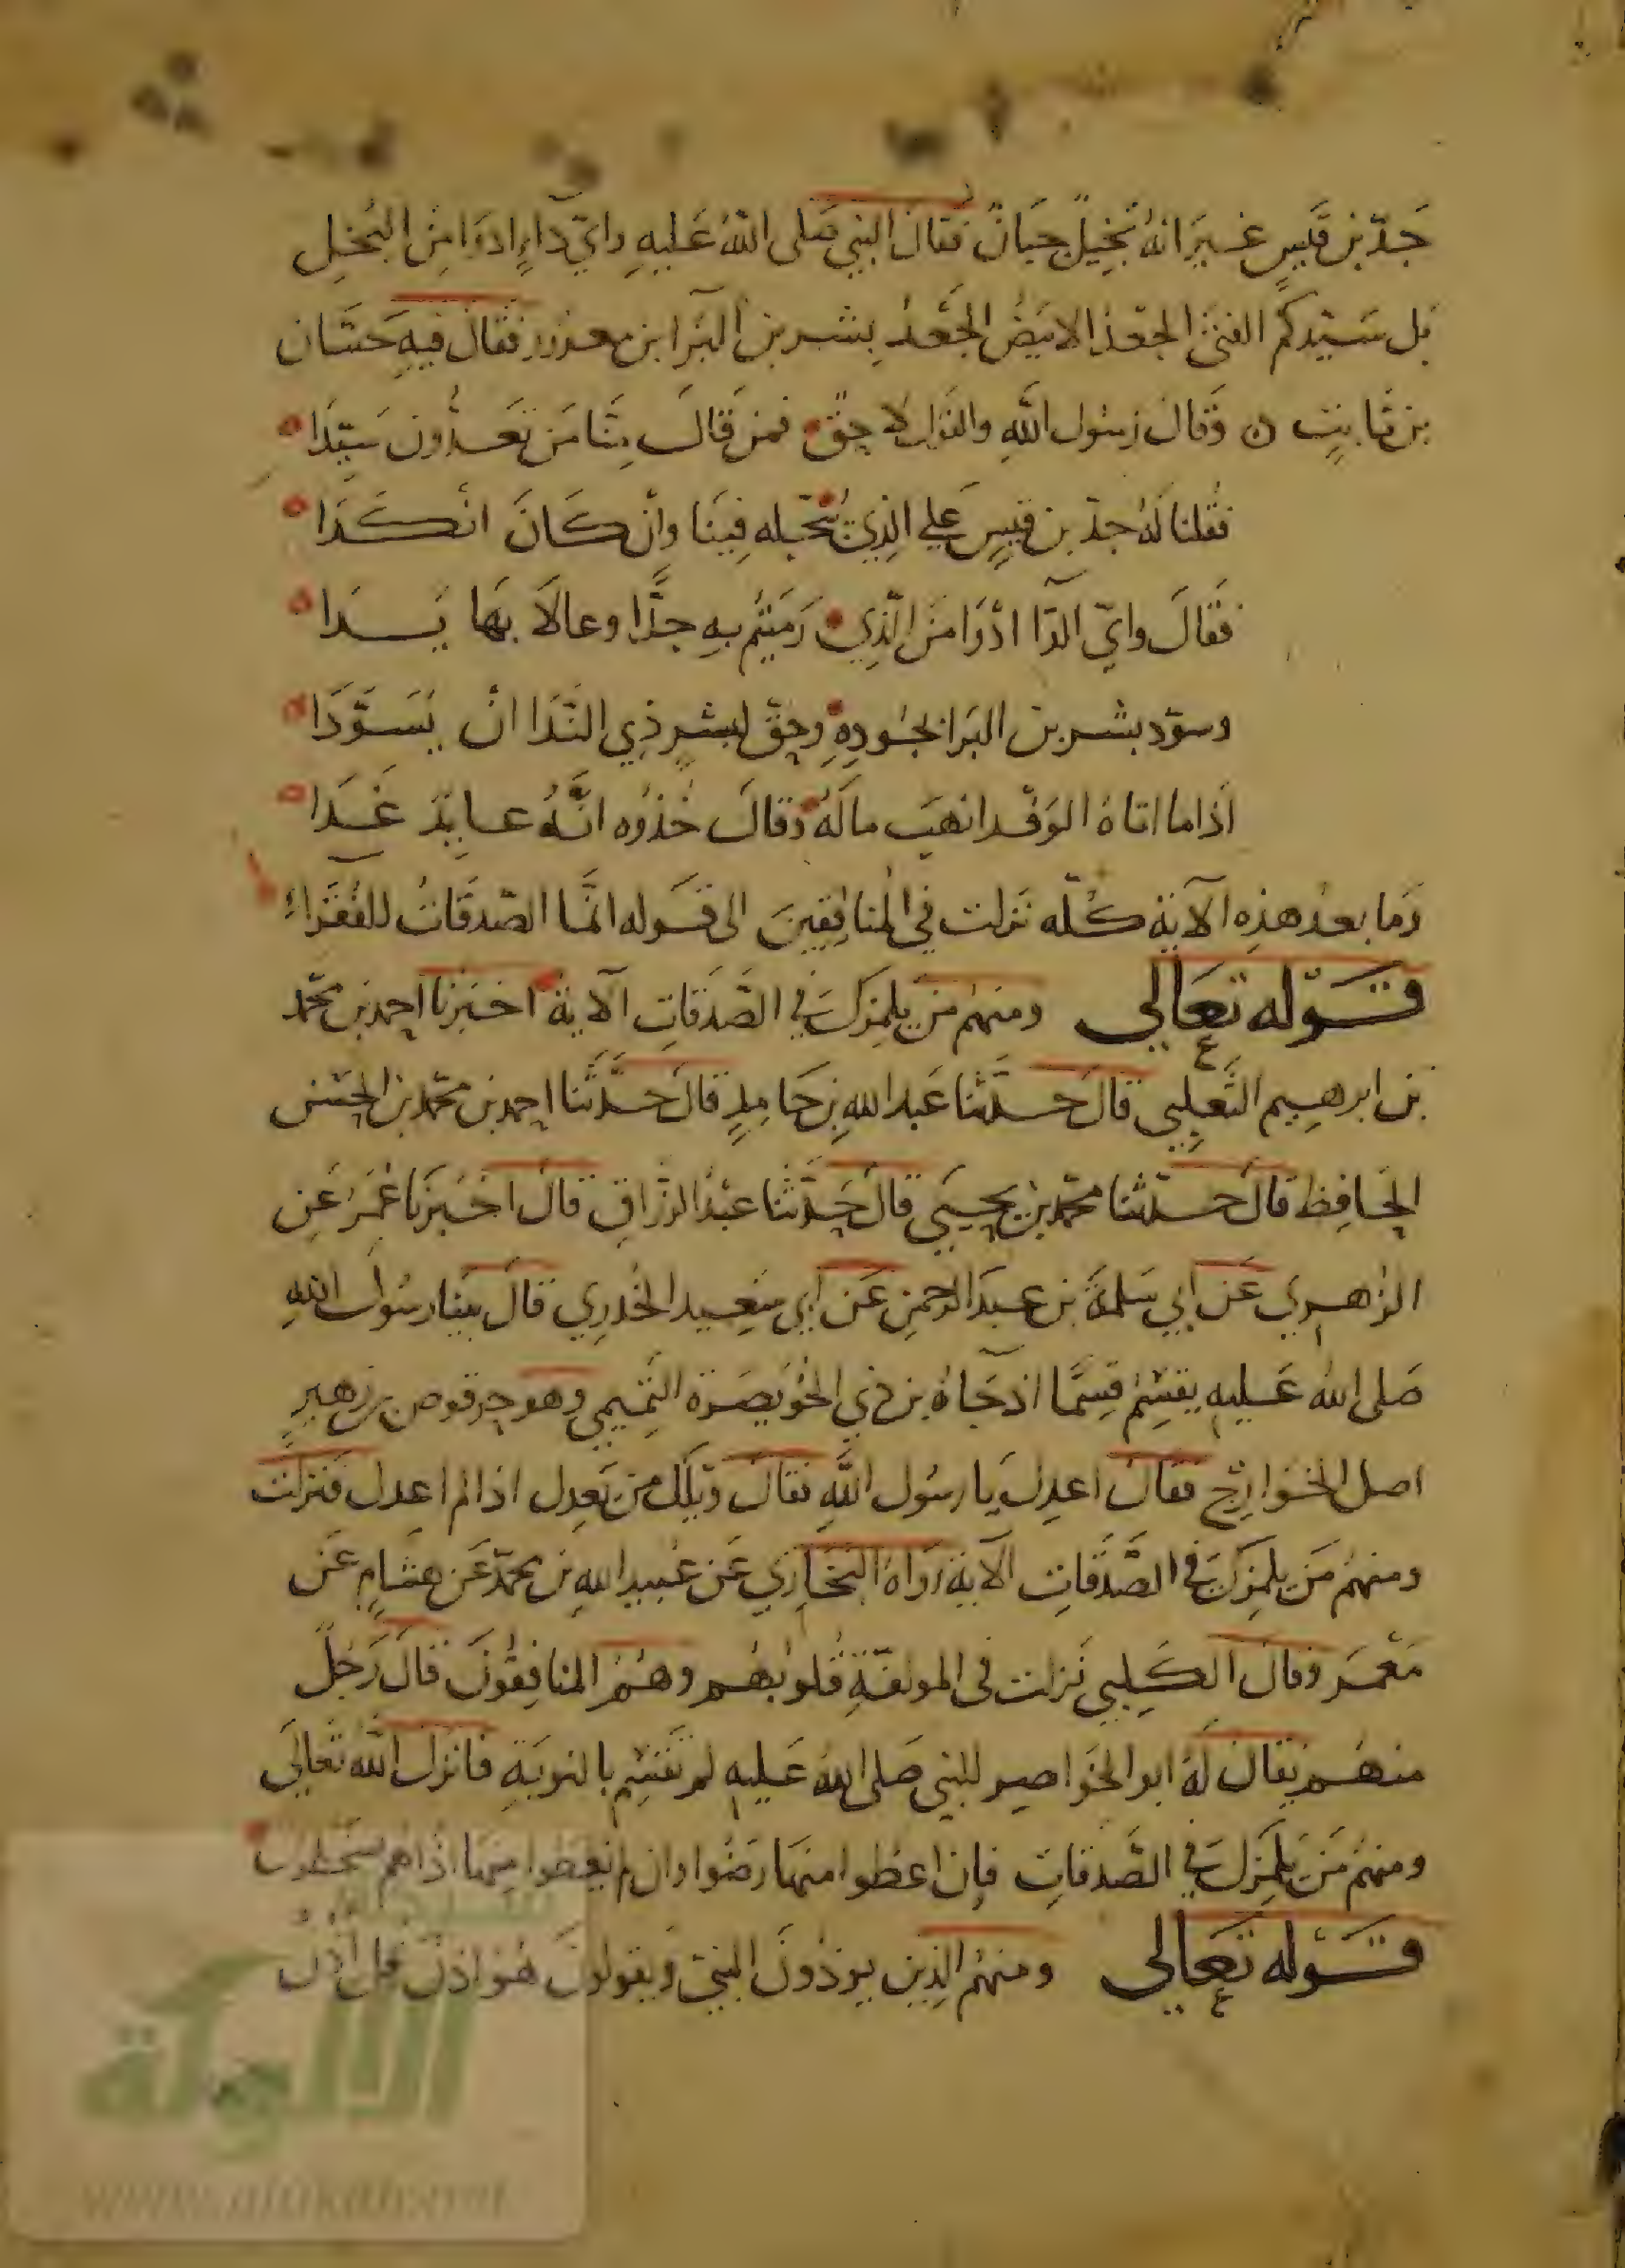 جَدّ بن قَيسٍ غيرَ انهُ بَخيلٌ جَبانٌ فقال النبي صَلى اللهُ عَليهِ وايّ دَآءٍ ادوَا مِن البُخلِ
بَل سَيّدكم الفتَى الجعدُ الابيَضُ الجَعْدُ بِشر بن البَرَا ابن معرور فقال فيهِ حَسّان
بن ثابتٍ ن وَقال رَسُول اللهِ والقَول لاحِقٌ فمن قَالَ مِنّا مَن تَعدُّون سَيّدَا
فقُلنا لهُ جدّ بن قيسٍ عَلي الذِي نُبَخّله فِينَا وانْ كَانَ انكَدَا
فَقَالَ وايّ الدآ ادْوَا مَن الّذِي رَمَيتُم بهِ جدًّا وعالاَ بهَا يَدَا
وسوّد بشر بن البَرا لجُودِهِ وحقّ لبشرٍ ذِي النّدَا انْ يُسَوَّدَا
اذا ما اتاهُ الوَفد انهبَ مالَهُ وقالَ خُذوُه انَّهُ عايدٌ غَدَا
وَما بعدَ هذِه الآية كُلّه نَزلت في المنافِقينَ الى قَوله انّمَا الصّدقَاتُ للفُقَرَاءِ
قَوْله تعَالي ومنهُم مَن يلمِزكَ في الصَّدَقاتِ الآية اخبَرنا احمد بن محمّد
بن ابرهيم الثَّعلِبي قالَ حدّثنا عَبد اللهِ بن حَامِدٍ قالَ حدَّثَنا احمد بن محمّد بن الحَسَن
الحَافِظ قالَ حدّثنا محمّد بن يحيَي قالَ حَدَّثنا عبْدُ الرزّاقِ قالَ اخبَرنَا مَعمَرُ عَن
الزُهري عَن ابي سَلمَةَ بن عبدَ الرحمنِ عَن ابي سَعِيد الخُدرِي قالَ بَينا رسُول اللهِ
صَلى اللهُ عَليهِ يقسِمُ قِسمًا اذ جَآهُ بن ذي الخُوَيصَرة التَّميمي وهو حرقوص بن زهيرٍ
اصل الخوَارِج فقال اعدِل يا رسُول اللهِ فقال وَيلَك من يَعدِل اذا لم اعدِل فنزلت
ومنهُم مَن يلمِزكَ في الصَّدقَاتِ الآية رَوَاهُ البُخَارِي عَن عُبيد اللهِ بن محمّد عَن هشَامٍ عَن
مَعْمَر وقال الكَلبي نَزلت في المولفَةِ قُلوبُهُم وهُمُ المنافِقُونَ قالَ رَجُلٌ
منهُم يقال لَهُ ابو الخَواصِر للنبي صَلى اللهُ عَليهِ لم تَقسِم بالسَّويَةِ فانزل اللهُ تعَالَى
ومنهُم مَن يَلمِزكَ في الصَّدقاتِ فإن اعطوا منهَا رضُوا وان لم يُعطوا مِنهَا اذَا هُم يَسخَطُون
قَوْله تَعَالي ومنهُم الذِين يوذونَ النبيّ ويقولونَ هُو اذنٌ قل اذُن
الألوكة
www.alukah.net